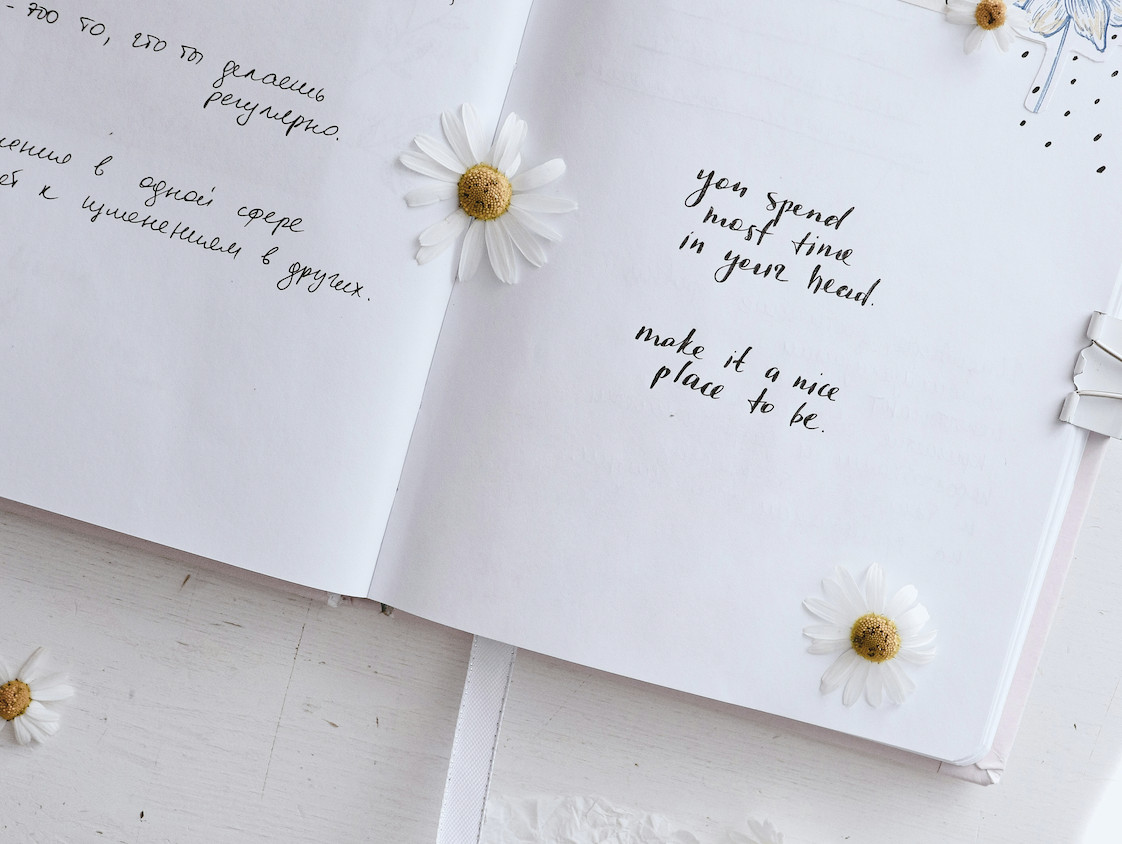 - это то, что ты делаешь
регулярно.
в одной сфере
к изменениям в других.
you spend
most time
in your head.
make it a nice
place to be.